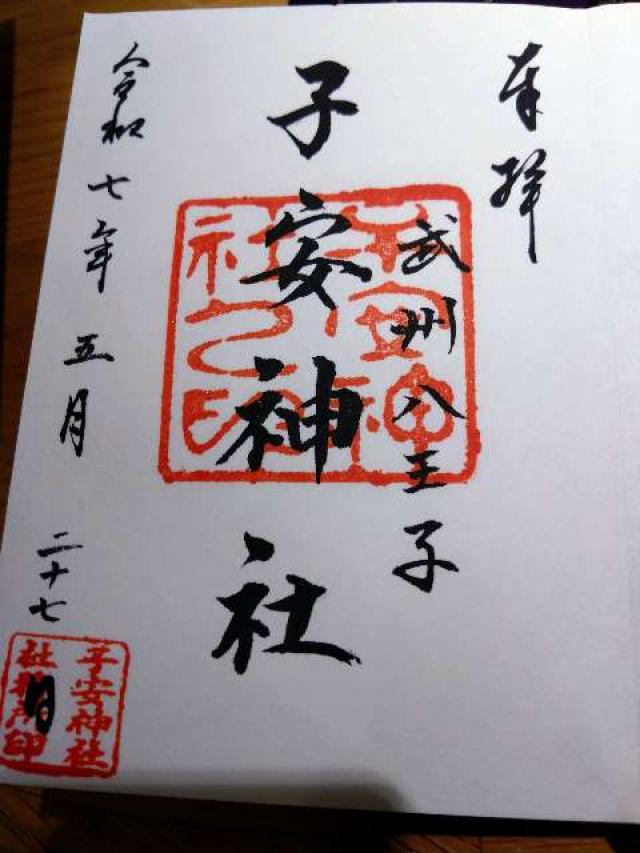 奉拝
武州八王子
子安神社
子安神社之印
令和七年五月二十七日
子安神社
社務所印